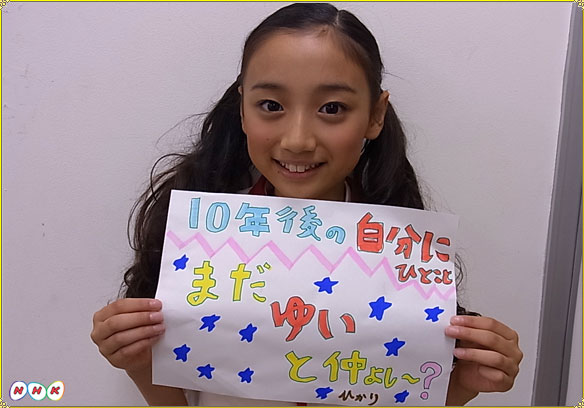 10年後の自分に
ひとこと
まだ
ゆい
と仲よし〜?
ひかり
NHK